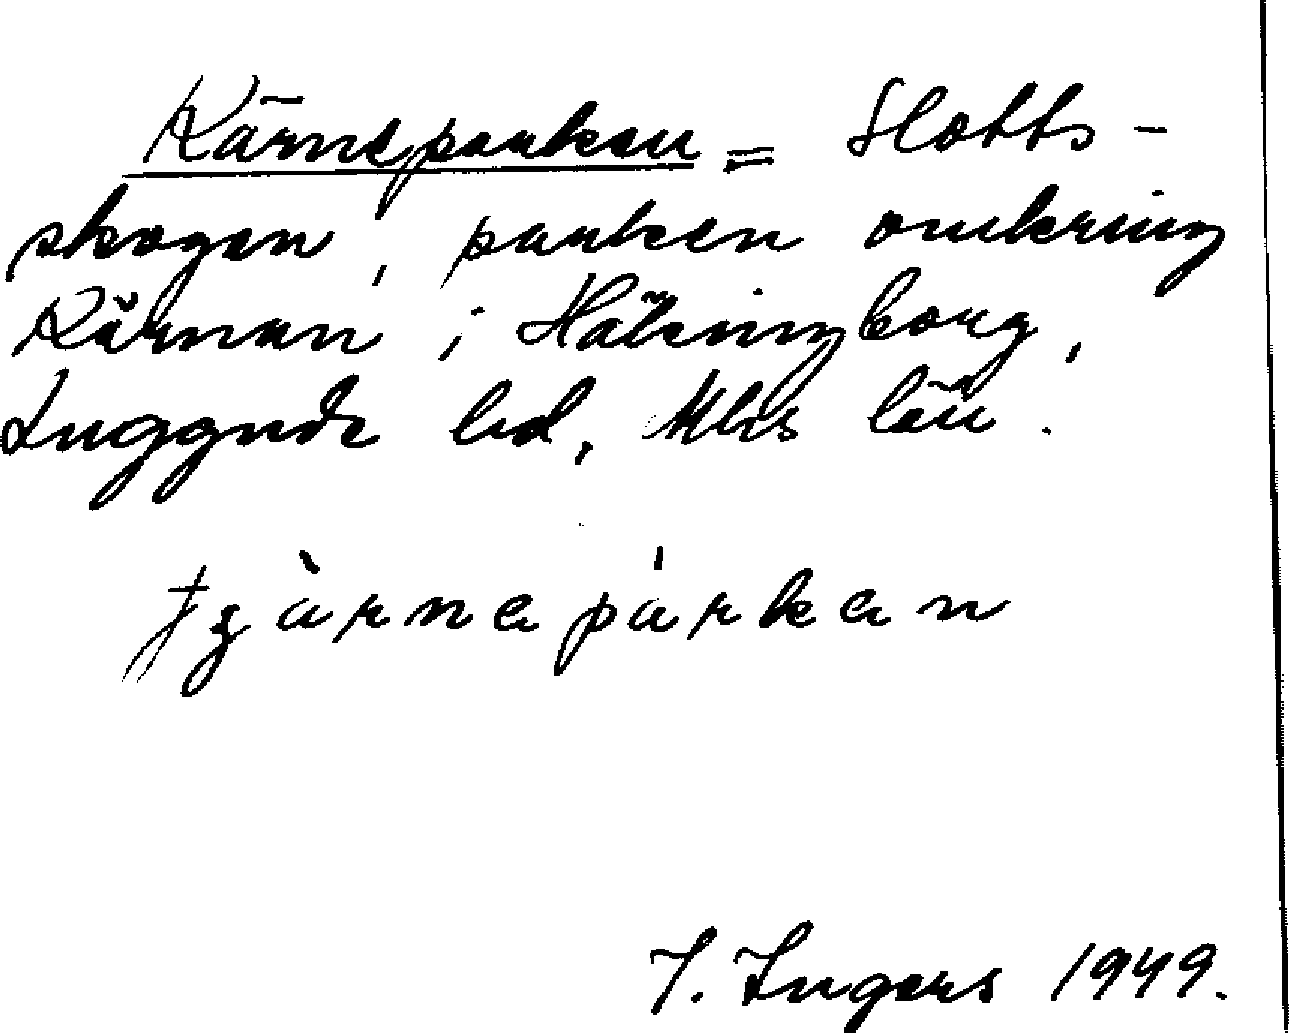 Kärneparken = Slotts-
skogen, parken omkring
Kärnan i Hälsingborg,
Luggude hd, Mhs län.
tʃàrnepárken
I. Ingers 1949.